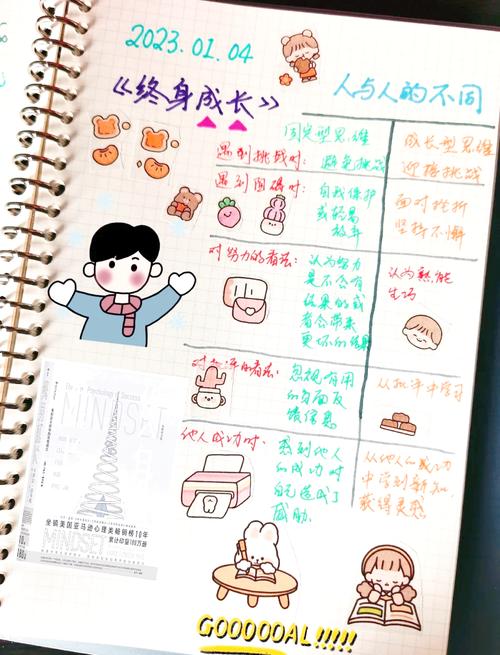 2023.01.04
《终身成长》
人与人的不同
固定型思维
成长型思维
遇到挑战时:
避免挑战
迎接挑战
遇到困难时:
自我保护
或轻易
放弃
面对挫折
坚持不懈
对努力的看法:
认为努力
是不会有
结果的或
者会带来
更坏的结果
认为熟能
生巧
对批评的看法:
忽视有用
的负面反
馈信息
从批评中学习
他人成功时:
感到他人
的成功对
自己造成了
威胁.
从他人的成功
中学到新知,
获得灵感
Success
MINDSET
坐镇美国亚马逊心理类畅销榜10年
累计印量100万册
MINDSET
GOOOOOAL!!!!!